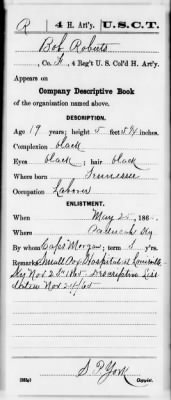 R | 4 H. Art'y. | U.S.C.T.
Bob Roberts
, Co. F, 4 Reg't U. S. Col'd H. Art'y.
Appears on
Company Descriptive Book
of the organization named above.
DESCRIPTION.
Age 19 years; height 5 feet 5¾ inches.
Complexion black
Eyes black; hair black
Where born Tennessee
Occupation Laborer
ENLISTMENT.
When May 25, 186
Where Paducah Ky
By whom Capt Morgan; term 3 y'rs.
Remarks: Small Pox Hospital at Louisville
Ky Nov 23" 1865. Descriptive List
dated Nov 24/65
S. P. York
Copyist.